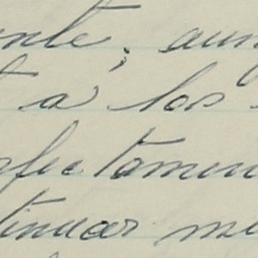 nte; aun
t a los
rfectamen
tinuar me